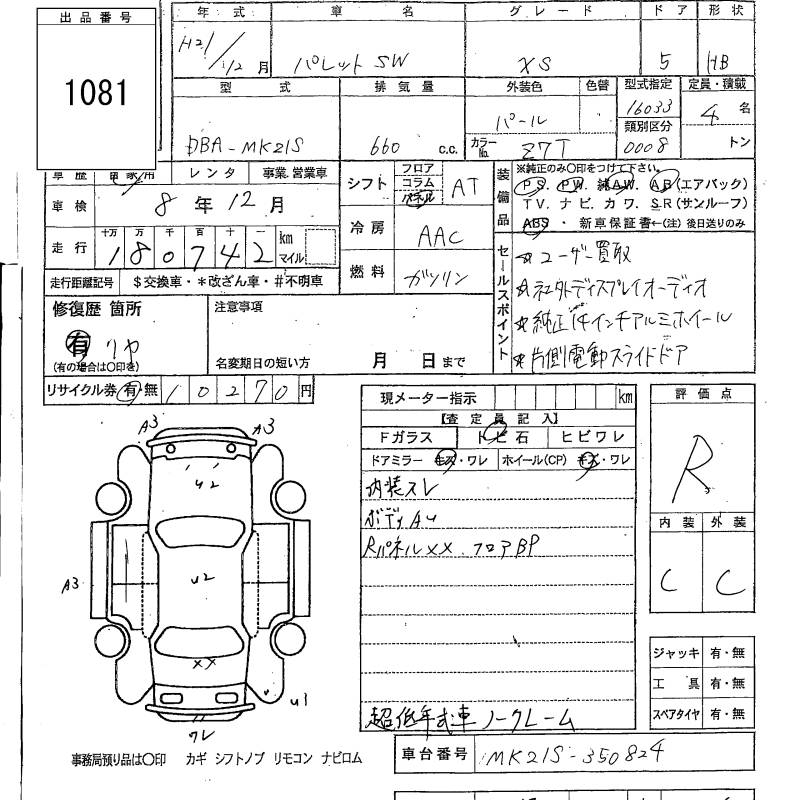 出品番号 年式 車名 グレード ドア 形状
1081 H21/12月 パレット SW XS 5 HB
型式 排気量 外装色 色替 型式指定 定員・積載
DBA-MK21S 660 c.c. パール 16033 4名
カラーNo. Z7T 類別区分 0008 トン
車歴 自家用 レンタ 事業.営業車
シフト フロア コラム パネル AT
車検 8年12月
冷房 AAC
走行 十万 万 千 百 十 一 180742 km マイル
燃料 ガソリン
走行距離記号 $交換車・*改ざん車・#不明車
装備品 ※純正のみ〇印をつけて下さい。
PS. PW. 純AW. AB(エアバック)
TV. ナビ. カワ. SR(サンルーフ)
ABS ・ 新車保証書←(注) 後日送りのみ
セールスポイント
☆ユーザー買取
☆社外ディスプレイオーディオ
☆純正14インチアルミホイール
☆片側電動スライドドア
修復歴 箇所 注意事項
有 リヤ
(有の場合は〇印を) 名変期日の短い方 月 日まで
リサイクル券 有・無 10270円
現メーター指示 km
【査定員記入】
Fガラス トビ石 ヒビワレ
ドアミラー キズ・ワレ ホイール(CP) キズ・ワレ
内装スレ
ボディAU
Rパネル XX. フロアBP
超低年式車 ノークレーム
評価点
R
内装 外装
C C
ジャッキ 有・無
工具 有・無
スペアタイヤ 有・無
A3 A3
U2
A3 U2
XX
U1
ワレ
事務局預り品は〇印 カギ シフトノブ リモコン ナビロム
車台番号 MK21S-350824